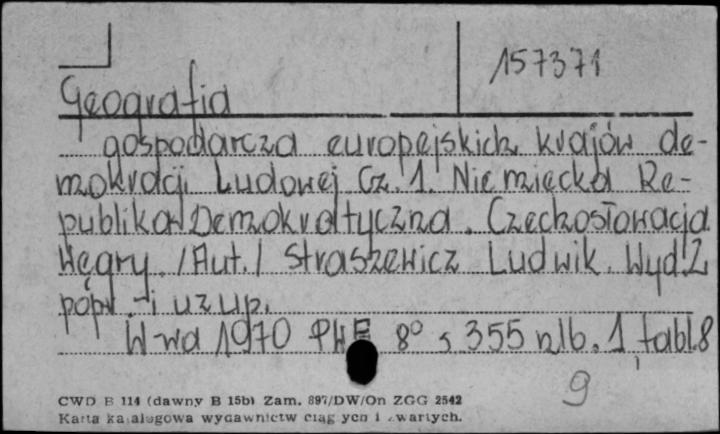 157371
Geografia
gospodarcza europejskich krajów de-
mokracji Ludowej Cz. 1. Niemiecka Re-
publika Demokratyczna. Czechosłowacja.
Węgry. /Aut./ Straszewicz Ludwik. Wyd 2
popr. i uzup.
W-wa 1970 PWE 8° s 355 nlb. 1, tabl. 8
9
CWD B 114 (dawny B 15b) Zam. 897/DW/On ZGG 2542
Karta katalogowa wydawnictw ciągłych i zwartych.